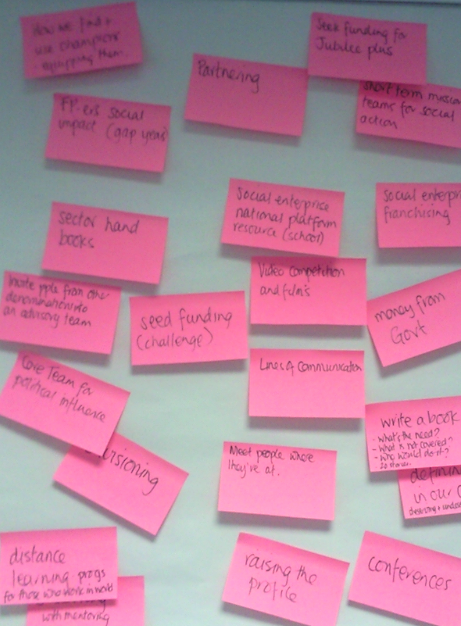 How we find +
use champions
- equipping them
Seek funding for
Jubilee plus
Partnering
Short term mission
teams for social
action
FP-ers social
impact (gap year)
Social enterprise
national platform
resource (school)
Social
franchising
Sector hand
books
Video competition
and films
Invite pple from other
denominations into
an advisory team
seed funding
(challenge)
money from
Govt
Lines of communication
Core Team for
political influence
write a book
- what's the need?
- what is not covered?
- who would do it?
in our
Meet people where
they're at.
distance
learning progs
for those who work in
with mentoring
raising the
profile
conferences